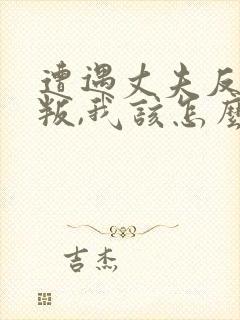 遭遇丈夫反
叛,我該怎麼
吉杰